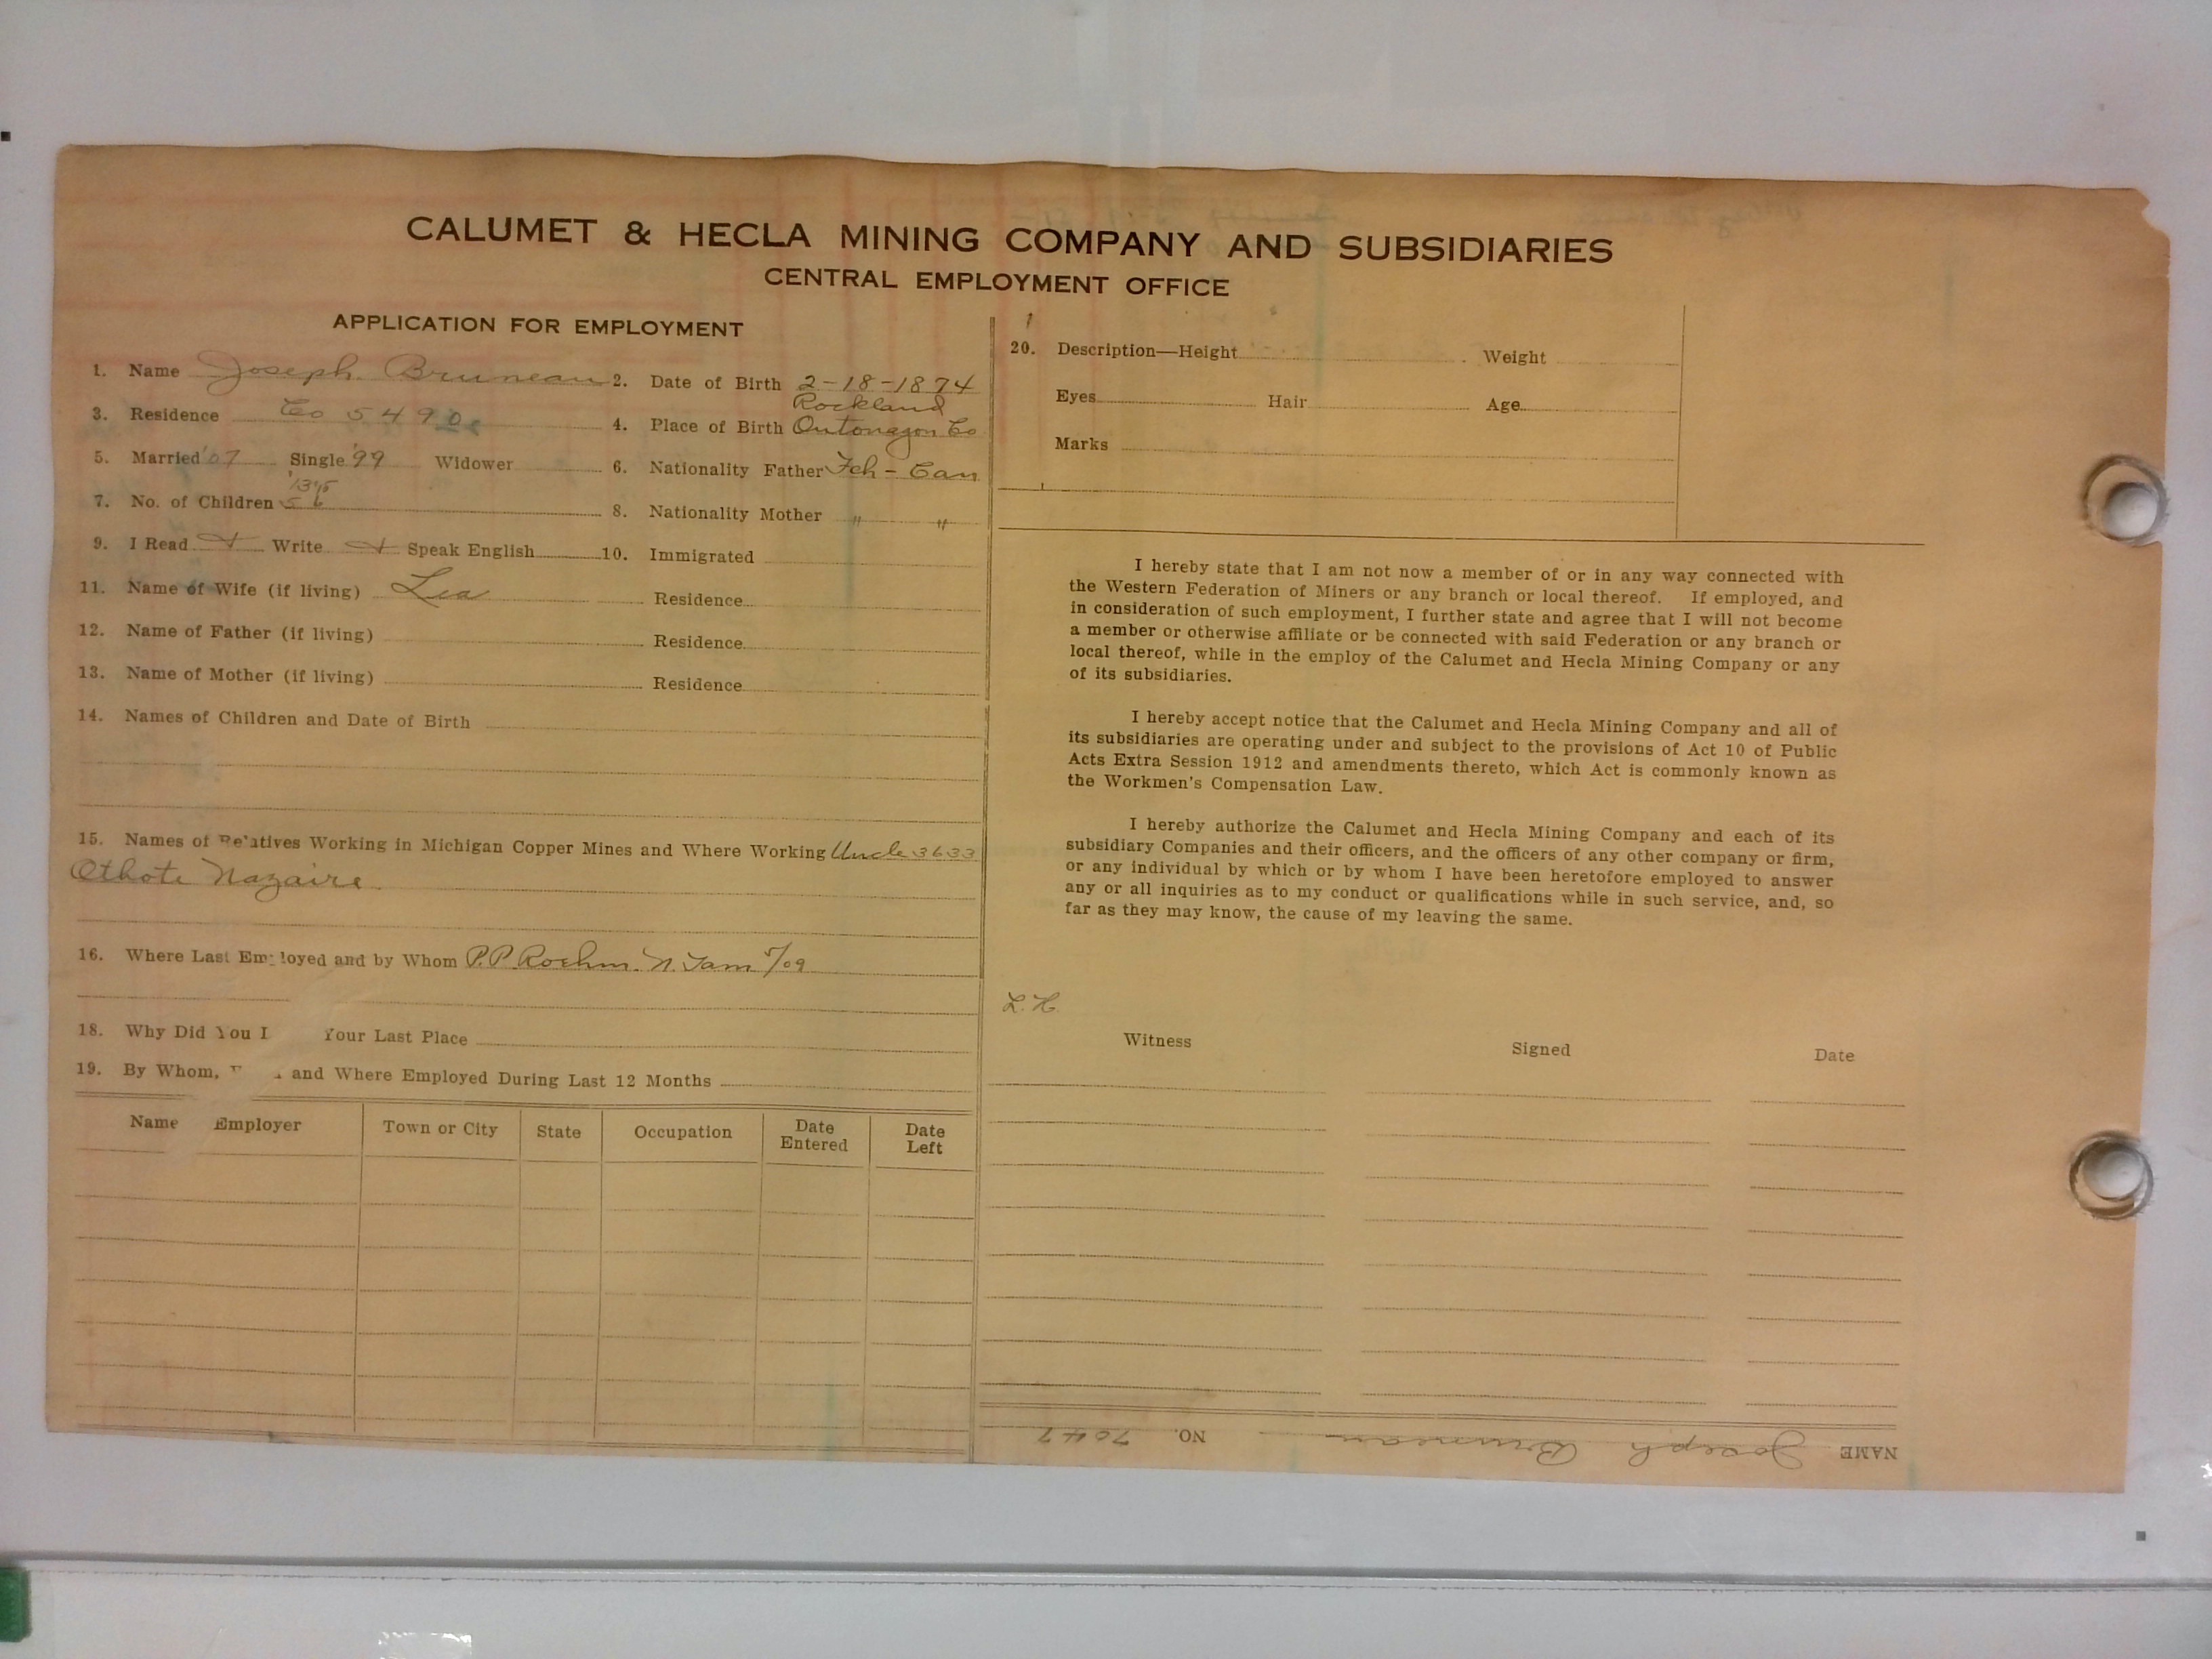 CALUMET & HECLA MINING COMPANY AND SUBSIDIARIES
CENTRAL EMPLOYMENT OFFICE
APPLICATION FOR EMPLOYMENT
1. Name Joseph Bruneau 2. Date of Birth 2-18-1874
3. Residence Co 5490
Rockland
4. Place of Birth Ontonagon Co
5. Married '07 Single '99 Widower 6. Nationality Father Fch-Can
'13 '15
7. No. of Children 5 6 8. Nationality Mother " "
9. I Read Write Speak English 10. Immigrated
11. Name of Wife (if living) Lea Residence
12. Name of Father (if living) Residence
13. Name of Mother (if living) Residence
14. Names of Children and Date of Birth
15. Names of Relatives Working in Michigan Copper Mines and Where Working Uncle 3633
Othote Nazaire
16. Where Last Employed and by Whom P.P. Roehm. N. Tam 5/09
18. Why Did You L Your Last Place
19. By Whom, and Where Employed During Last 12 Months
Name Employer Town or City State Occupation Date Entered Date Left
20. Description—Height Weight
Eyes Hair Age
Marks
I hereby state that I am not now a member of or in any way connected with
the Western Federation of Miners or any branch or local thereof. If employed, and
in consideration of such employment, I further state and agree that I will not become
a member or otherwise affiliate or be connected with said Federation or any branch or
local thereof, while in the employ of the Calumet and Hecla Mining Company or any
of its subsidiaries.
I hereby accept notice that the Calumet and Hecla Mining Company and all of
its subsidiaries are operating under and subject to the provisions of Act 10 of Public
Acts Extra Session 1912 and amendments thereto, which Act is commonly known as
the Workmen's Compensation Law.
I hereby authorize the Calumet and Hecla Mining Company and each of its
subsidiary Companies and their officers, and the officers of any other company or firm,
or any individual by which or by whom I have been heretofore employed to answer
any or all inquiries as to my conduct or qualifications while in such service, and, so
far as they may know, the cause of my leaving the same.
L.H.
Witness Signed Date
NAME Joseph Bruneau NO. 7047